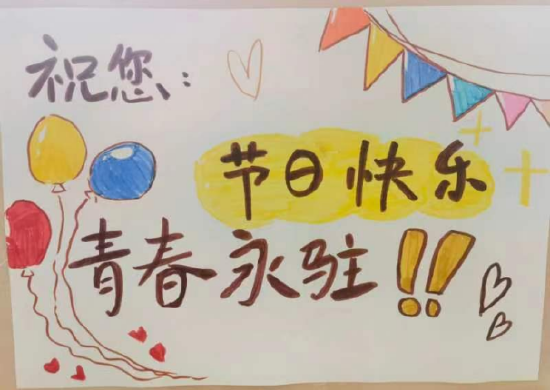 祝您:
节日快乐
青春永驻!!